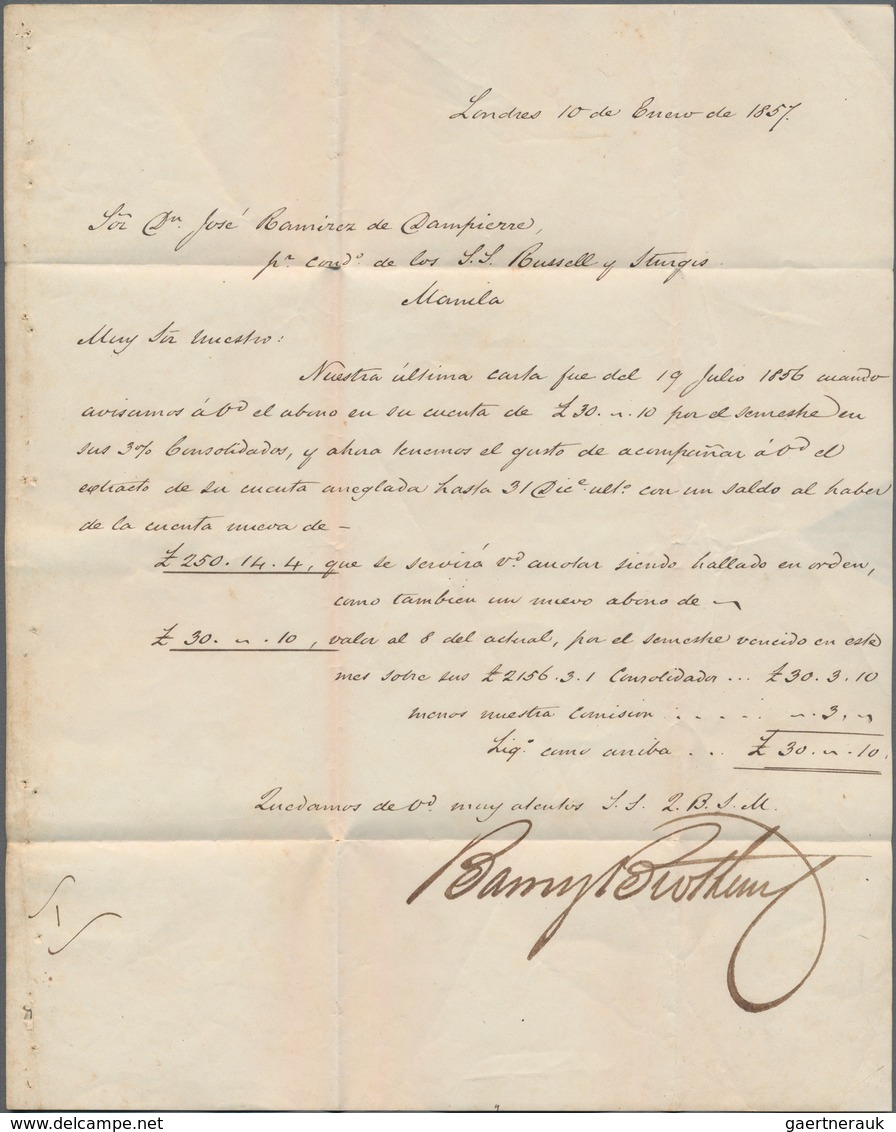 Londres 10 de Enero de 1857.
Sōr Dn. José Ramirez de Dampierre,
pr. condo. de los S.S. Russell y Sturgis.
Manila
Muy Sōr nuestro:
Nuestra última carta fue del 19 Julio 1856 cuando
avisamos á Vd el abono en su cuenta de £30. ~ . 10 por el semestre en
sus 3% Consolidados, y ahora tenemos el gusto de acompañar á Vd el
extracto de su cuenta arreglada hasta 31 Dice. ulto. con un saldo al haber
de la cuenta nueva de —
£ 250. 14. 4, que se servirá Vd. anotar siendo hallado en orden,
como tambien un nuevo abono de ~
£ 30. ~ . 10, valor al 8 del actual, por el semestre vencido en este
mes sobre sus £2156. 3. 1 Consolidados ... £30. 3. 10
menos nuestra Comision . . . . . ~. 3. ~
Liqo. como arriba . . . £ 30. ~ . 10.
Quedamos de Vd. muy atentos S. S. Q. B. S. M.
Baring Brothers
www.delcampe.net
gaertnerauk